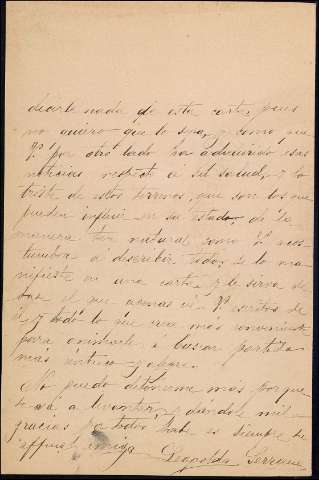 decirle nada de esta carta, pues
no quiero que lo sepa, y como que
V. por otro lado ha adquirido esas
noticias respecto a su salud, y lo
triste de estos terrenos, que son los que
pueden influir en su estado, de la
manera tan natural como V. acos-
tumbra a describir todo, se lo ma-
nifieste en una carta, y le sirva de
base el que
él, y todo lo que crea más conveniente
para animarle a buscar partido
más
No puedo detenerme más porque
se va a levantar, y dándole mil
gracias por todo, sabe es siempre su
affmo. amigo Leopoldo Serrano